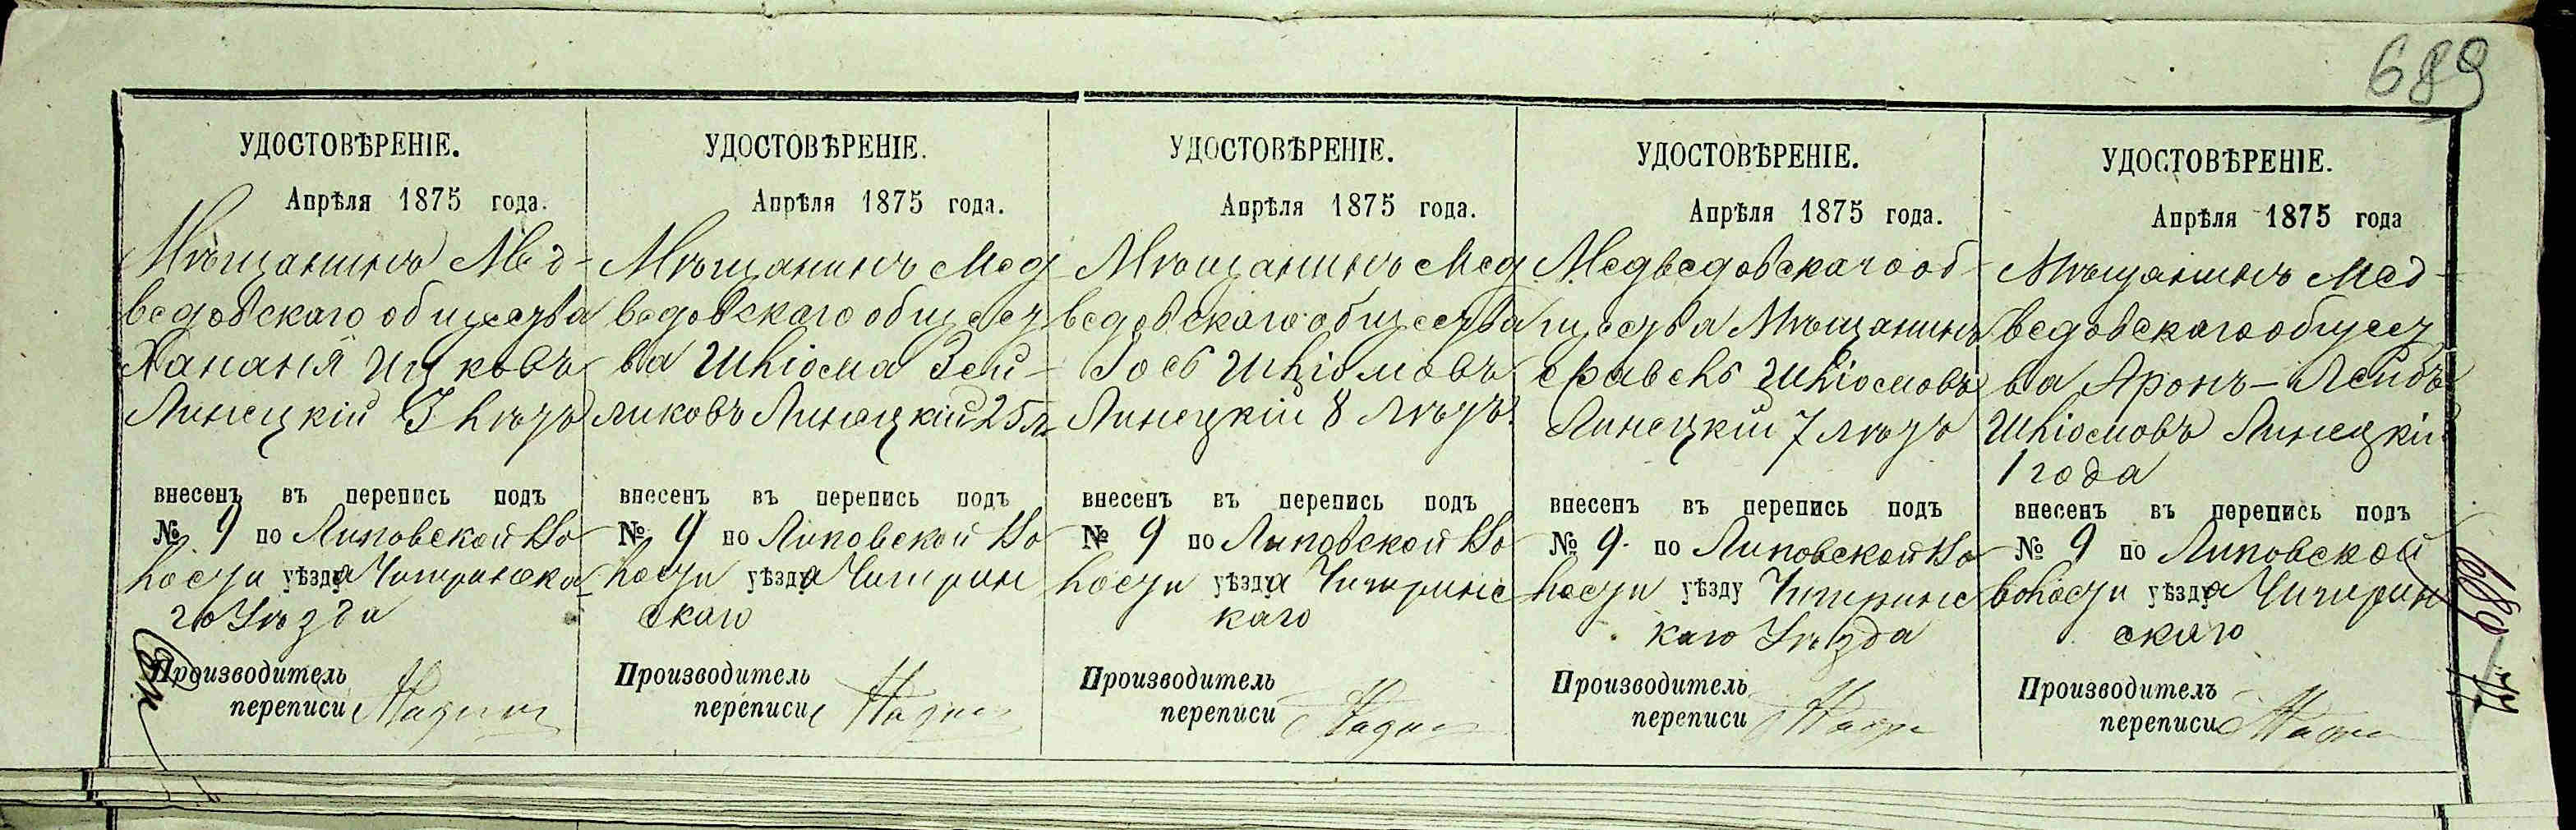 689
УДОСТОВѢРЕНІЕ.
Апрѣля 1875 года.
Мѣщанинъ Мед-
ведовскаго общества
Хананія Ицковъ
Линецкій 3 лѣтъ
внесенъ въ перепись подъ
№ 9 по Липовской Во
лости уѣзда Чигринска
го Уѣзда
Производитель
переписи
УДОСТОВѢРЕНІЕ.
Апрѣля 1875 года.
Мѣщанинъ Мед
ведовскаго общест
ва Шліома Зей-
ликовъ Линецкій 25 л.
внесенъ въ перепись подъ
№ 9 по Липовской Во
лости уѣзда Чигрин
скаго
Производитель
переписи
УДОСТОВѢРЕНІЕ.
Апрѣля 1875 года.
Мѣщанинъ Мед
ведовскаго общества
Іось Шліомовъ
Линецкій 8 лѣтъ.
внесенъ въ перепись подъ
№ 9 по Липовской Во
лости уѣзда Чигринс
каго
Производитель
переписи
УДОСТОВѢРЕНІЕ.
Апрѣля 1875 года.
Медведовскаго об-
щества Мѣщанинъ
Сравель Шліомовъ
Линецкій 7 лѣтъ
внесенъ въ перепись подъ
№ 9. по Липовской Во
лости уѣзду Чигринс
каго Уѣзда
Производитель
переписи
УДОСТОВѢРЕНІЕ.
Апрѣля 1875 года
Мѣщанинъ Мед-
ведовскаго общест
ва Аронъ-Лейбъ
Шліомовъ Линецкій
1 года
внесенъ въ перепись подъ
№ 9 по Липовской
волости уѣзда Чигрин
скаго
Производитель
переписи
689